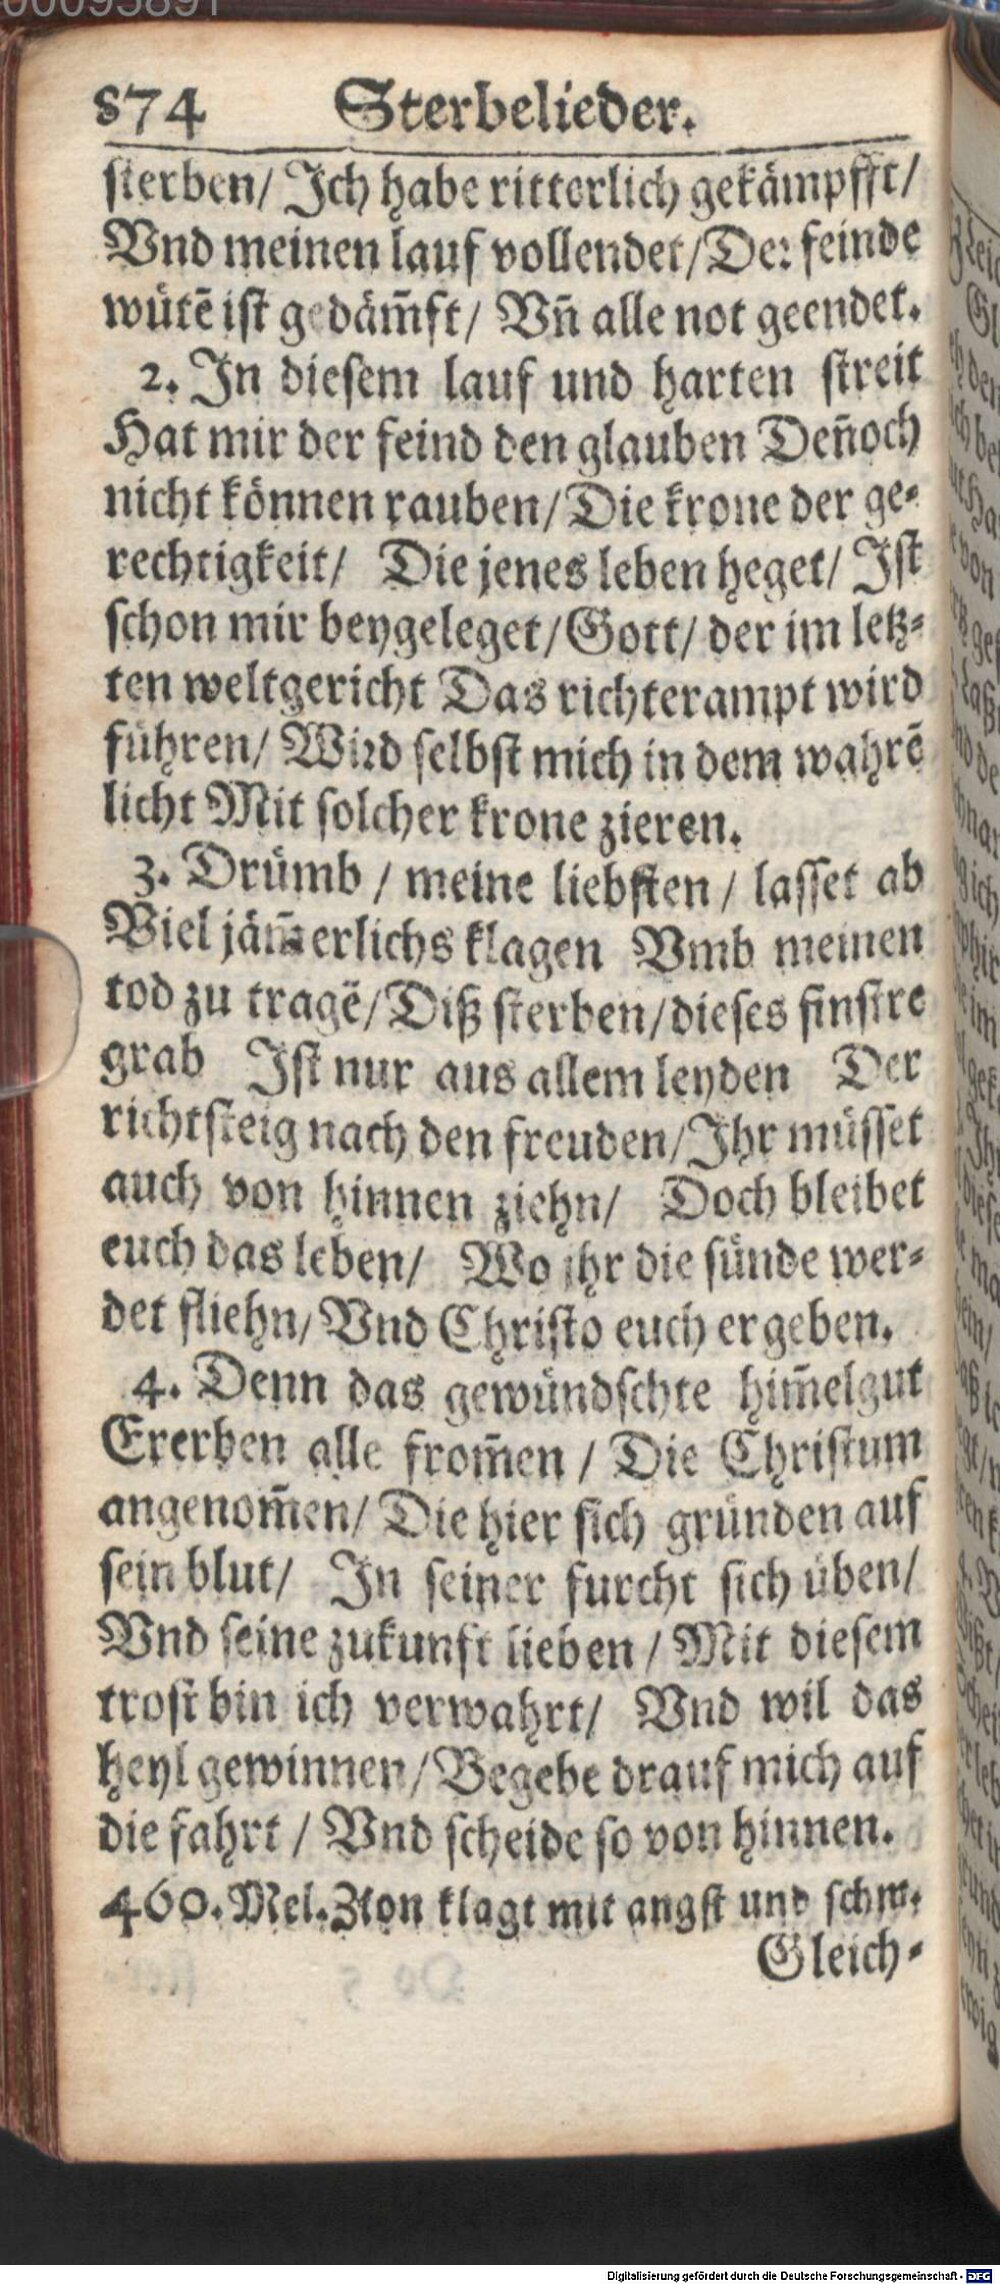 00095891
874 Sterbelieder.
sterben/ Ich habe ritterlich gekämpfft/
Vnd meinen lauf vollendet/Der feinde
wütē ist gedäm̃ft/ Vñ alle not geendet.
2. In diesem lauf und harten streit
Hat mir der feind den glauben Deñoch
nicht können rauben/Die krone der ge-
rechtigkeit/ Die jenes leben heget/ Ist
schon mir beygeleget/Gott/ der im letz-
ten weltgericht Das richterampt wird
führen/ Wird selbst mich in dem wahrē
licht Mit solcher krone zieren.
3. Drümb / meine liebsten / lasset ab
Viel jäm̃erlichs klagen Vmb meinen
tod zu tragē/Diß sterben/dieses finstre
grab Ist nur aus allem leyden Der
richtsteig nach den freuden/Ihr müsset
auch von hinnen ziehn/ Doch bleibet
euch das leben/ Wo ihr die sünde wer-
det fliehn/Vnd Christo euch ergeben.
4. Denn das gewündschte him̃elgut
Ererben alle from̃en / Die Christum
angenom̃en/Die hier sich gründen auf
sein blut/ In seiner furcht sich üben/
Vnd seine zukunft lieben / Mit diesem
trost bin ich verwahrt/ Vnd wil das
heyl gewinnen/Begebe drauf mich auf
die fahrt / Vnd scheide so von hinnen.
460. Mel. Zion klagt mit angst und schm.
Gleich-
Digitalisierung gefördert durch die Deutsche Forschungsgemeinschaft - DFG